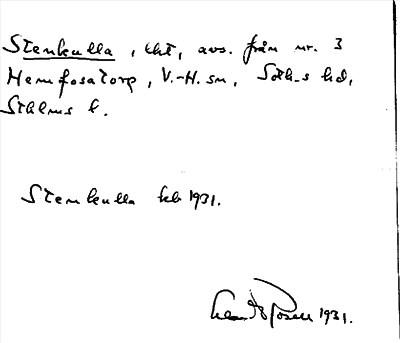 Stenkulla, lht, avs. från nr. 3
Hemfosatorp, V.-H. sn, Soth-s hd,
Sthlms l.
Stenkulla feb 1931.
1931.